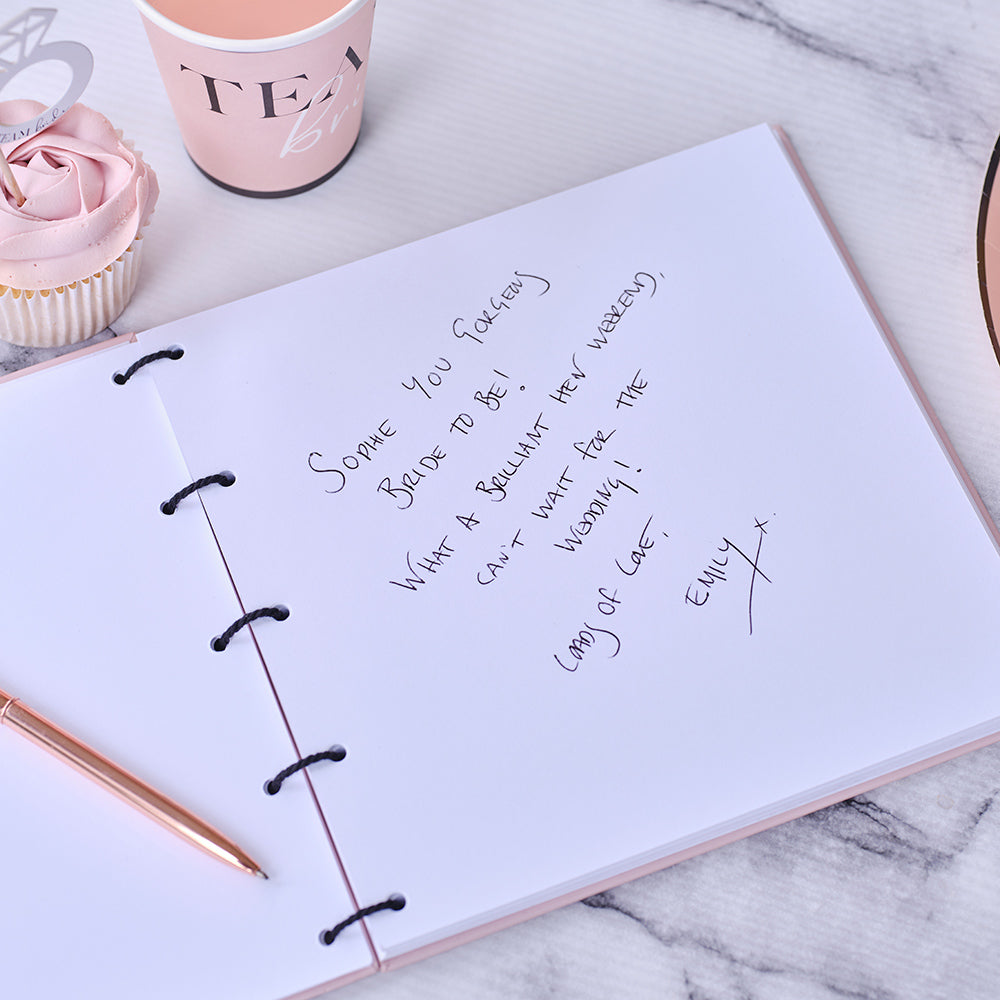 TEAM bride
TEA
bri
SOPHIE YOU GORGEOUS
BRIDE TO BE!
WHAT A BRILLIANT HEN WEEKEND,
CAN'T WAIT FOR THE
WEDDING!
LOADS OF LOVE!
EMILY x.